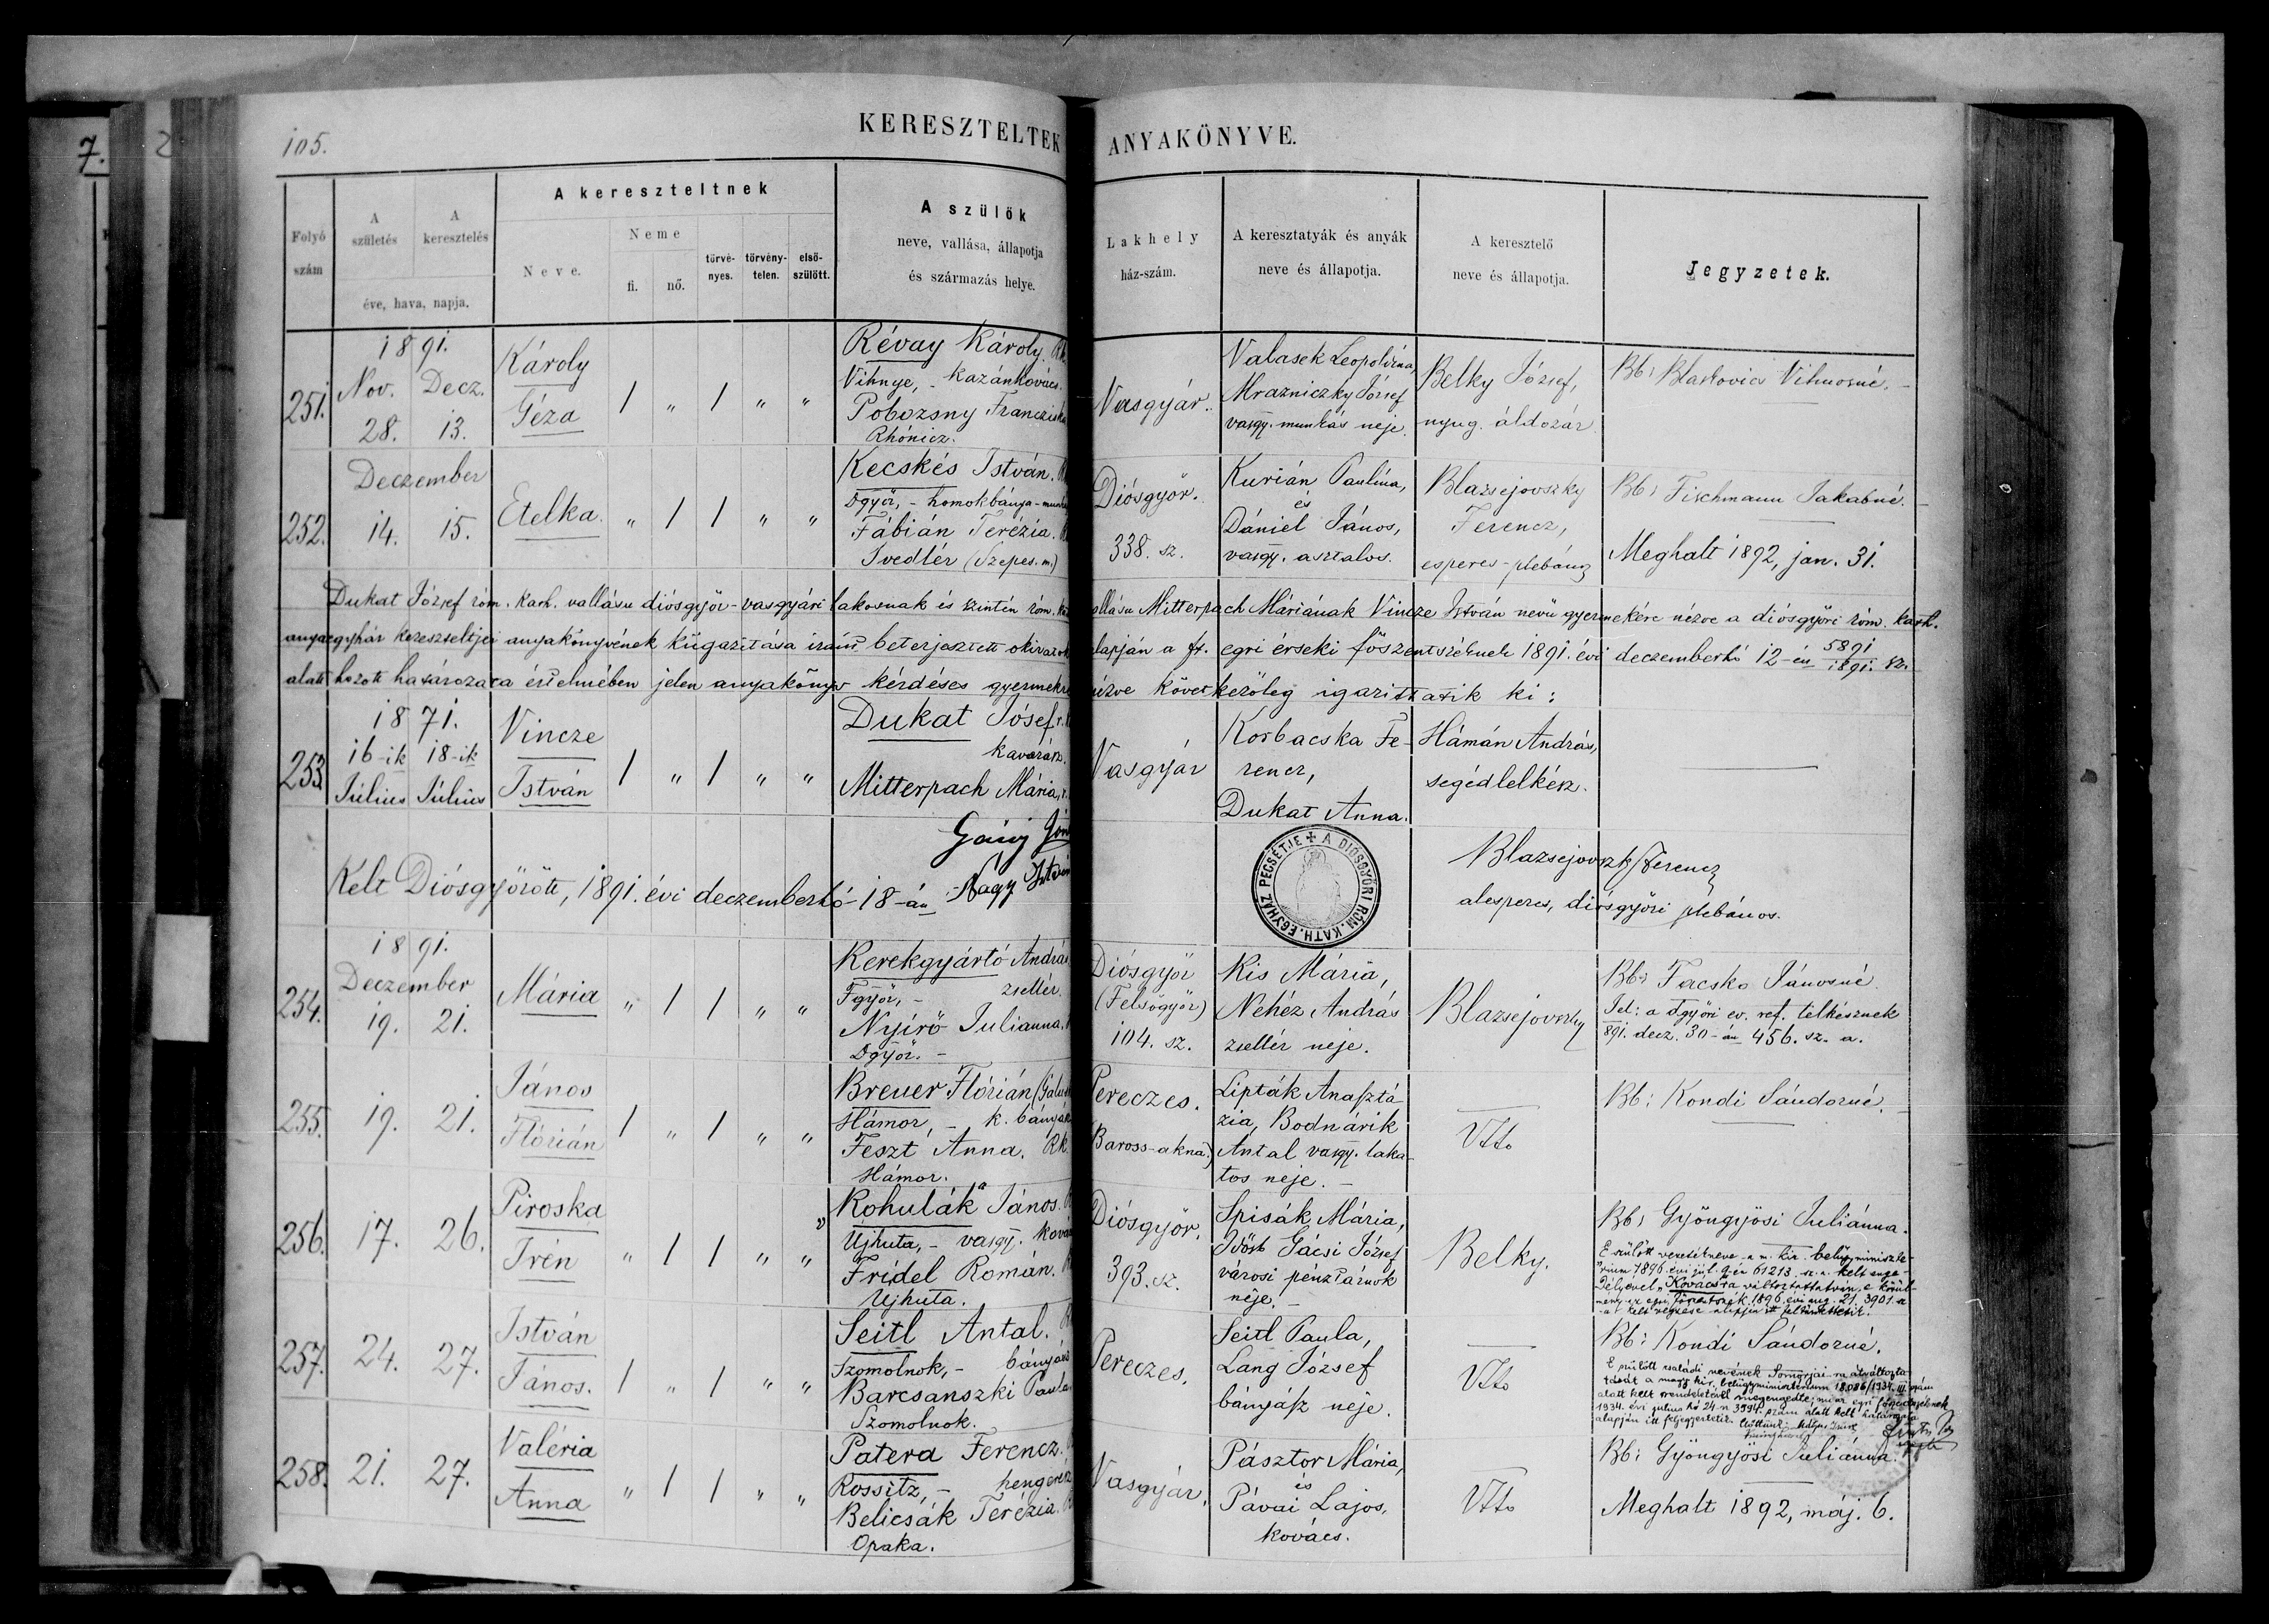 7.
105.
KERESZTELTEK ANYAKÖNYVE.
Folyó szám
A születés
A keresztelés
éve, hava, napja.
A kereszteltnek
Neve.
Neme
fi.
nő.
törvé-nyes.
törvény-telen.
első-szülött.
A szülők
neve, vallása, állapotja
és származás helye.
Lakhely
ház-szám.
A keresztatyák és anyák
neve és állapotja.
A keresztelő
neve és állapotja.
Jegyzetek.
251.
1891.
Nov. Decz.
28. 13.
Károly
Géza
/ " / " "
Révay Károly. Rk.
Vihnye, - kazánkovács.
Pobozsny Francziska
Rhónicz.
Vasgyár.
Valasek Leopoldina,
Mrazniczky József
vasgy. munkás neje.
Belky József,
nyug. áldozár
Bb:
252.
Deczember
14. 15.
Etelka.
" / / " "
Kecskés István.
Dgyőr, - homokbánya-munk
Fábián Terézia.
Svedlér (Szepes. m.)
Diósgyőr.
338. sz.
Kurián Paulina,
és
Dániel János,
vasgy. asztalos.
Blazsejovszky
Ferencz,
esperes-plebános
Bb: Fischmann Jakabné.
Meghalt 1892, jan. 31.
Dukat József róm. kath. vallásu diósgyőr-vasgyári lakosnak és szintén róm. allásu Mitterpach Máriának Vincze István nevű gyermekére nézve a diósgyőri róm. kath.
anyaegyház kereszteltjei anyakönyvének kiigazitása iránt beterjesztett okiratok lapján a egri érseki főszentszéknek 1891. évi deczemberhó 12-én 5891/1891. sz.
alatt hozott határozata értelmében jelen anyakönyv kérdéses gyermekre nézve következőleg igazittatik ki:
253.
1871.
16-ik 18-ik
Július Július
Vincze
István
/ " / " "
Dukat Jósef
kavarász.
Mitterpach Mária,
Vasgyár
Korbacska Fe-
rencz,
Dukat Anna.
Hámán András,
segédlelkész.
Kelt Diósgyőrött, 1891. évi deczemberhó 18-án
Nagy István
A DIÓSGYŐRI RÓM. KATH. EGYHÁZ PECSÉTJE
Blazsejovszky Ferencz
alesperes, diósgyőri plebános.
254.
1891.
Deczember
19. 21.
Mária
" / / " "
Kerekgyártó András
Fgyőr, - zsellér.
Nyírő Julianna.
Dgyőr. -
Diósgyőr
(Felsőgyőr)
104. sz.
Kis Mária,
Nehéz András
zsellér neje.
Blazsejovszky
Bb: Facsko Jánosné.
Jel: a dgyőri ev. ref. lelkésznek
891. decz. 30-án 456. sz. a.
255.
19. 21.
János
Flórián
/ " / " "
Breuer Flórián,
Hámor, - k. bányász
Feszt Anna. Rk.
Hámor.
Pereczes.
(Baross-akna.)
Lipták Anasztá-
zia, Bodnárik
Antal vasgy. laka-
tos neje. -
Utto
Bb: Kondi Sándorné.
256.
17. 26.
Piroska
Irén
" / / " "
Kohulák János.
Ujhuta, - vasgy. kovács
Fridel Román.
Ujhuta.
Diósgyőr.
393. sz.
Spisák Mária,
Idősb Gácsi József
városi pénztárnok
neje. -
Belky.
Bb: Gyöngyösi Juliánna.
E szülött vezetékneve a m. kir. belügyminiszte-
rium 1896. évi júl. 9-én 61213. sz. a. kelt enge-
délyével „Kovács"ra változtattatván, e körül-
mény az egri 1896. évi aug. 21. 3901. sz.
a. kelt végzése alapján itt feltüntettetik.
257.
24. 27.
István
János.
/ " / " "
Seitl Antal.
Szomolnok, - bányász
Barcsanszki Paula
Szomolnok.
Pereczes.
Seitl Paula,
Lang József
bányász neje.
Utto
Bb: Kondi Sándorné.
E szülött családi nevének Somorjai-ra átváltozta-
tását a magy. kir. belügyminisztérium 18.086/1934. III szám
alatt kelt rendeletével megengedte, mi az egri
1934. évi julius hó 24-n 3994. szám alatt kelt határozata
alapján itt feljegyeztetik.
258.
21. 27.
Valéria
Anna
" / / " "
Patera Ferencz.
Rossitz, - hengerész
Belicsák Terézia.
Opaka.
Vasgyár.
Pásztor Mária,
és
Pávai Lajos,
kovács.
Utto
Bb: Gyöngyösi Juliánna.
Meghalt 1892, máj. 6.